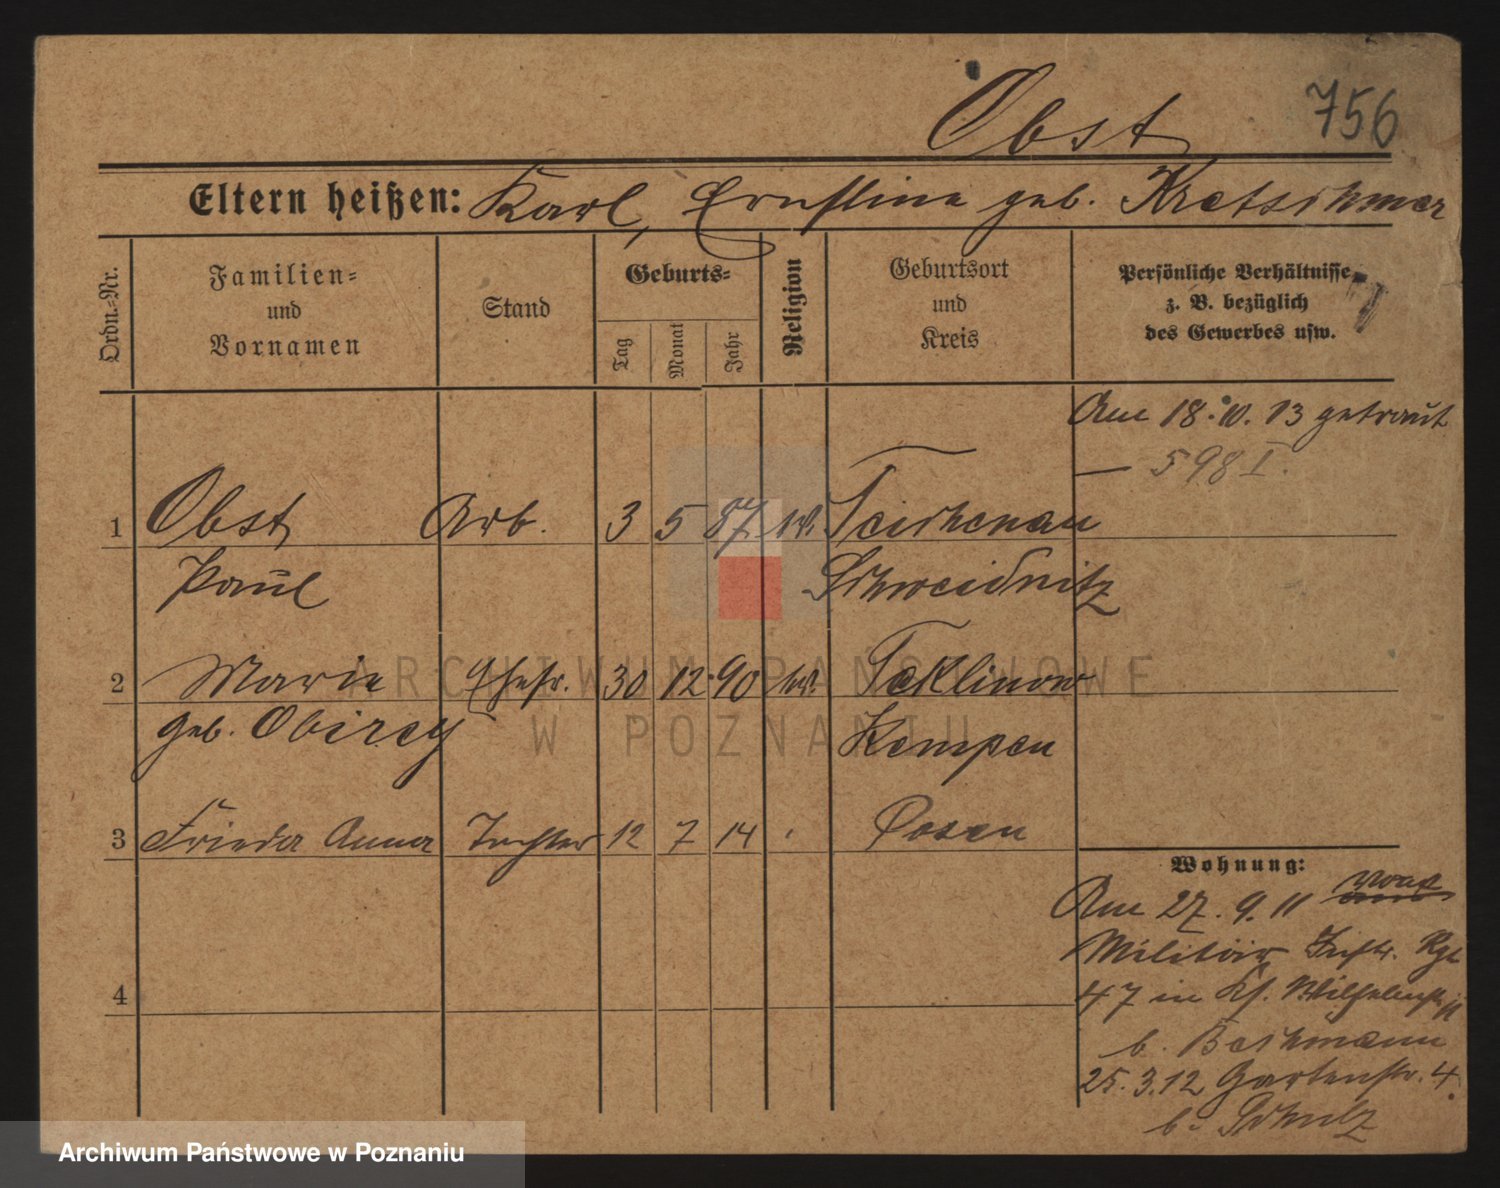 Obst 756
Eltern heißen: Karl, Ernstine geb. Kretschmer
Ordn.-Nr.
Familien-
und
Vornamen
Stand
Geburts-
Tag
Monat
Jahr
Religion
Geburtsort
und
Kreis
Persönliche Verhältnisse
z. B. bezüglich
des Gewerbes usw.
Am 18.10.13 getraut
— 598 I.
1 Obst Arb. 3 5 87 Teichenau
Paul Schweidnitz
2 Marie Ehefr. 30 12 90 Teklinow
geb. Kempen
3 Frieda Anna Tochter 12 7 14 Posen
4
Wohnung:
Am 27.9.11 vom
Militär Inftr. Rgt
47 in
b. Bachmann
25.3.12 Gartenstr. 4.
b. Schulz
ARCHIWUM PAŃSTWOWE
W POZNANIU
Archiwum Państwowe w Poznaniu